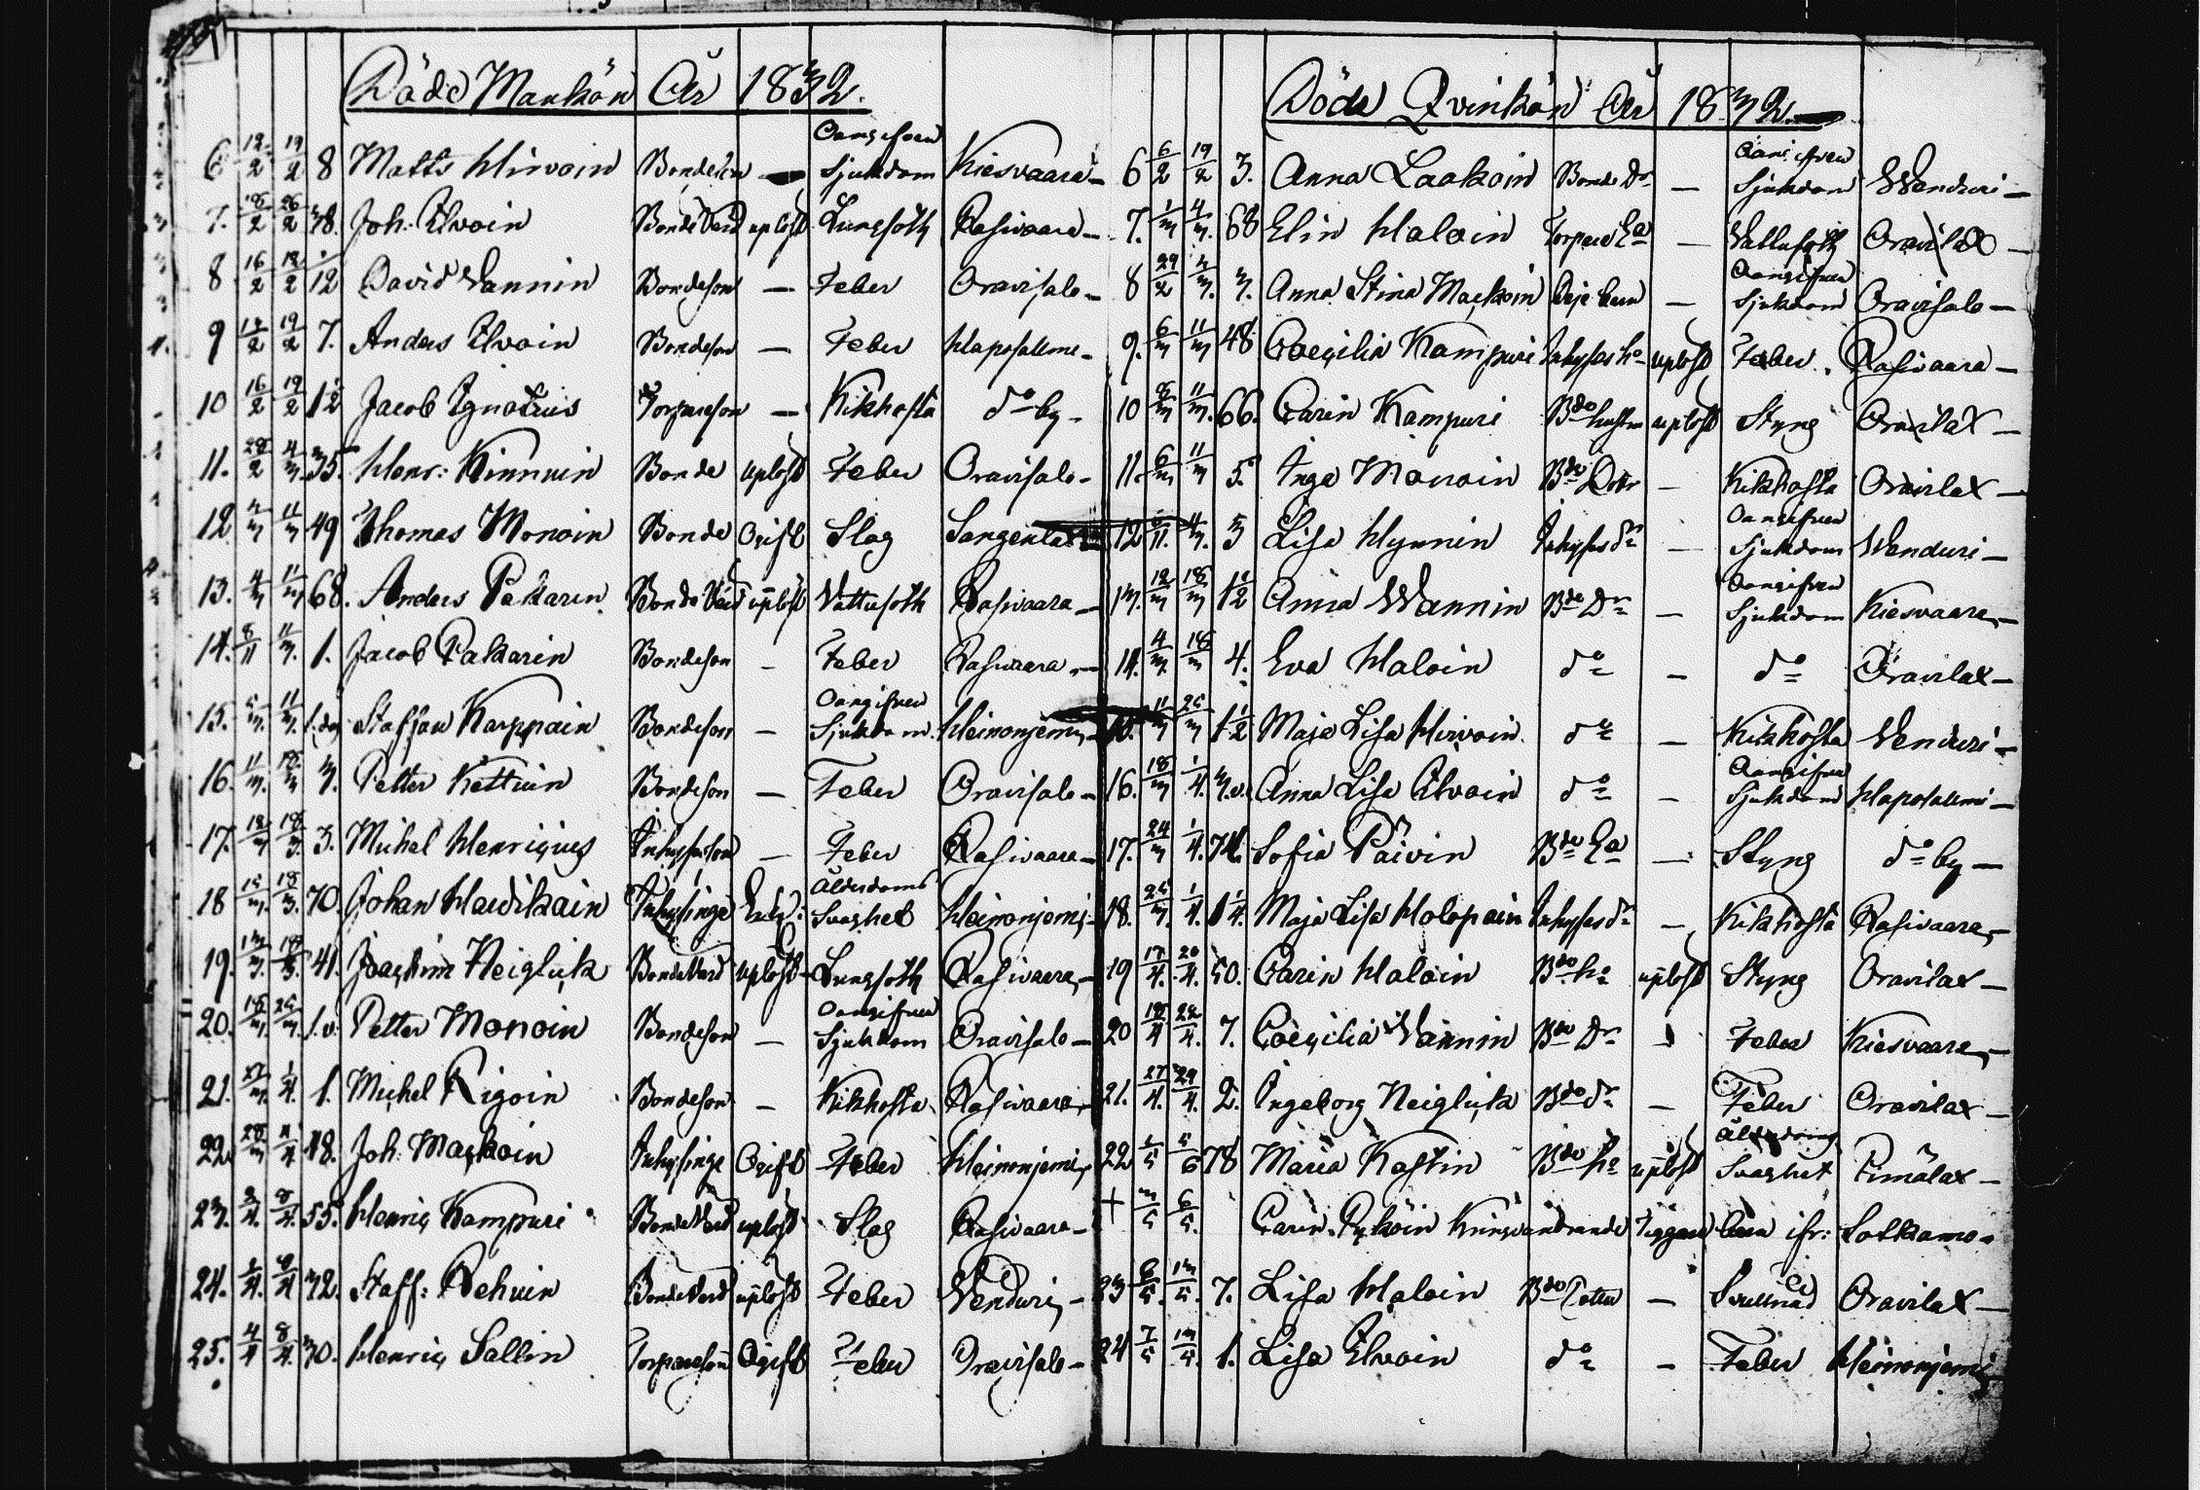 Döde Mankön År 1832.
6 12/2 19/2 8 Matts Hirvoin Bondeson — Oangifven Sjukdom Kiesvaara —
7. 18/2 26/2 38. Joh. Ilvoin Bonde uplöst Lungsoth Rasivaara —
8 16/2 18/2 1/12 David Vannin Bondeson — Feber Oravisalo —
9 14/2 19/2 7. Anders Ilvoin Bondeson — Feber Haposalmi —
10 16/2 19/2 1 1/2 Jacob Ignatius Torpareson — Kikhosta do by —
11. 28/2 4/3. 35. Henr: Kinnuin Bonde uplöst Feber Oravisalo —
12 11/3 49 Thomas Monoin Bonde Ogift Slag Sangenlax
13. 4/3 11/3 68. Anders Pakarin Bonde uplöst Vattusoth Rasivaara —
14. 8/11 11/3. 1. Jacob Pakarin Bondeson — Feber Rasivaara —
15. 5/3. 11/3. 1. dag Staffan Karppain Bondeson — Oangifven Sjukdom. Heinonjemi —
16. 11/3. 18/3 3. Petter Kettuin Bondeson — Feber Oravisalo —
17. 18/3 18/3. 3. Michel Henricius Inhyseson — Feber Rasivaara —
18 15/3. 18/3. 70. Johan Havikain Inhysinge Enkl: Ålderdoms Svaghet Heinonjemi —
19. 13/3. 18/3. 41. Joachim Neiglick Bonde uplöst Lungsoth Rasivaara —
20. 18/3. 25/3. 1. v. Petter Monoin Bondeson — Oangifven Sjukdom Oravisalo —
21. 27/3. 1/4. 1. Michel Rigoin Bondeson — Kikhosta Rasivaara —
22. 28/3 4/4 18. Joh. Mackoin Inhysinge Ogift Feber Heinonjemi —
23. 2/4. 8/4. 55. Henric Kampuri Bonde uplöst Slag Rasivaara —
24. 2/4. 8/4 32. Staff: Rehuin Bonde uplöst Feber Venduri —
25. 4/4 8/4. 30. Henric Sallin Torpareson Ogift Feber Oravisalo —
Döde Qvinkön År 1832. —
6 6/2 19/2 3. Anna Laakoin Bonde Dr — Oangifven Sjukdom Wenduri —
7. 1/3 4/3. 68 Elin Haloin Torpare Ea — Vattusoth Oravilax —
8 29/2 4/3. 3. Anna Stina Mackoin barn — Oangifven Sjukdom Oravisalo —
9. 6/3 11/3 48 Cæcilia Kampuri Inhyses ho uplöst Feber. Rasivaara —
10 8/3 11/3. 66. Carin Kampuri Bde hustru uplöst Styng Oravilax —
11. 6/3 11/3 5. Inga Monoin Bde Dotter — Kikhosta Oravilax —
12 4/3. 3 Lisa Hynnin Inhyses dr — Oangifven Sjukdom Wenduri —
13. 12/3 18/3 1 1/2 Anna Wannin Bde Dr — Oangifven Sjukdom Kiesvaara —
14. 4/3 18/3 4. Eva Haloin do — do Oravilax —
15. 11/3 25/3 1 1/2 Maja Lisa Hirvoin do — Kikhosta Venduri —
16. 18/3 1/4. 3. v. Anna Lisa Ilvoin do — Oangifven Sjukdom Haposalmi —
17. 24/3 1/4. 74. Sofia Päivin Bde Ea — Styng do by —
18. 25/3. 1/4. 1 1/4. Maja Lisa Holopain Inhyses dr — Kikhosta Rasivaara —
19 17/4. 20/4. 50. Carin Haloin Bde ho uplöst Styng Oravilax —
20 18/4 22/4. 7. Cæcilia Vannin Bde Dr - Feber Kiesvaara —
21. 27/4. 29/4. 2. Ingeborg Neiglick Bde dr — Feber Oravilax —
22 2/5 5/6 78 Maria Kostin Bde ho uplöst Ålderdoms Svaghet Pimälax —
+ 3/5 6/5. Carin Pyköin Kringvandrande Tiggare ifr: Sotkamo.
23 6/5. 13/5. 7. Lisa Haloin Bde Dotter — Svullnad Oravilax —
24 7/5 13/5. 1. Lisa Ilvoin do — Feber Heinonjemi